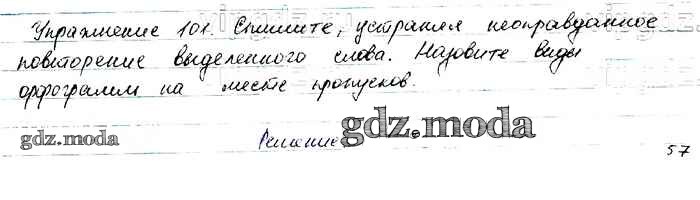 Упражнение 101. Спишите, устраняя неоправданное
повторение выделенного слова. Назовите виды
орфограмм на месте пропусков.
gdz.moda
Решение
gdz.moda
57